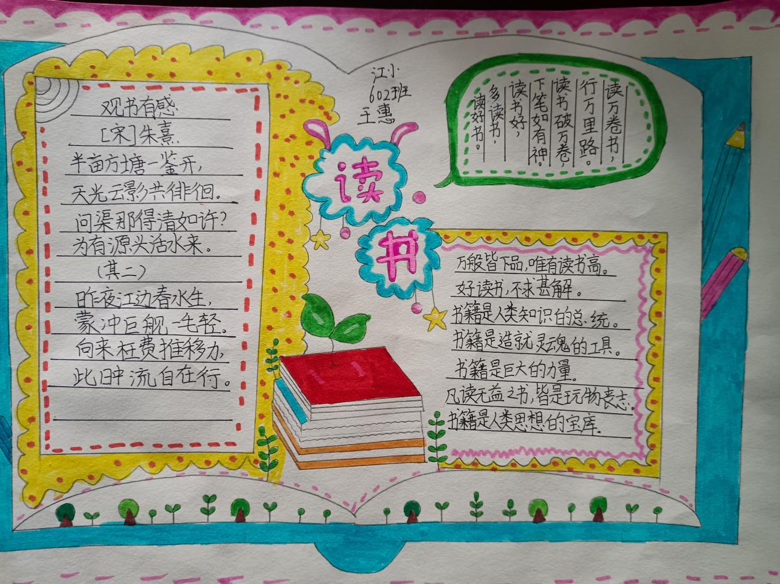 观书有感
[宋]朱熹
半亩方塘一鉴开,
天光云影共徘徊。
问渠那得清如许?
为有源头活水来。
(其二)
昨夜江边春水生,
蒙冲巨舰一毛轻。
向来枉费推移力,
此日中流自在行。
江小
602班
王惠
读书
读万卷书,
行万里路。
读书破万卷,
下笔如有神。
读书好,
多读书,
读好书。
万般皆下品,唯有读书高。
好读书,不求甚解。
书籍是人类知识的总统。
书籍是造就灵魂的工具。
书籍是巨大的力量。
凡读无益之书,皆是玩物丧志。
书籍是人类思想的宝库。